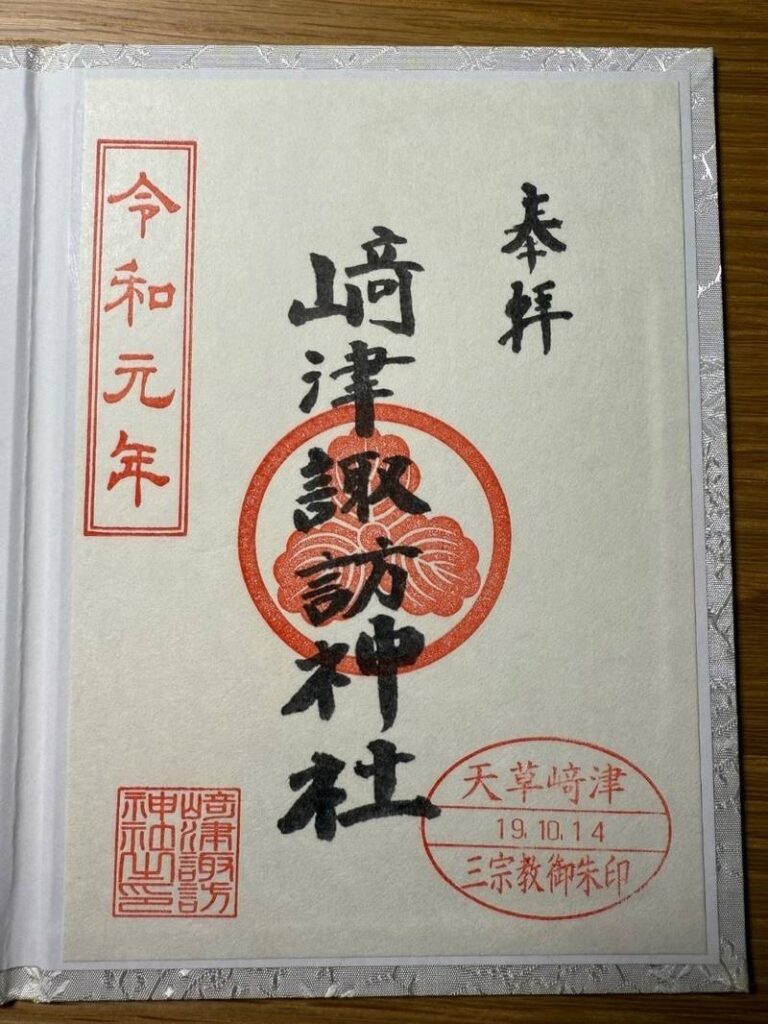 奉拝
﨑津諏訪神社
令和元年
天草﨑津
19.10.14
三宗教御朱印
﨑津諏訪
神社之印